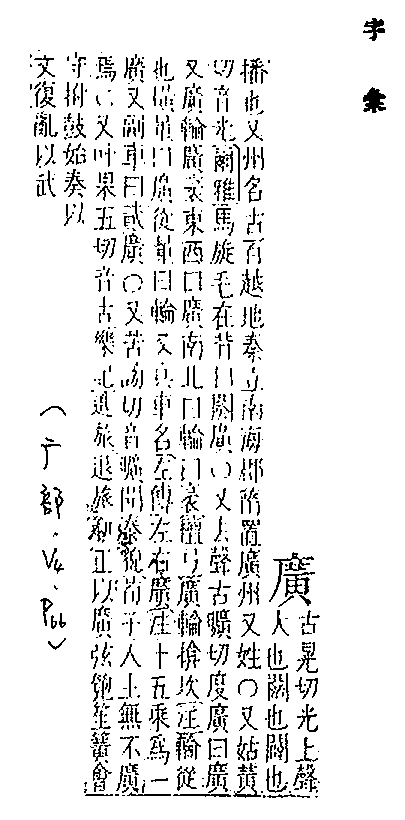 字彙
廣
古晃切光上聲
大也闊也闢也
播也又州名古百越地秦立南海郡隋置廣州又姓○又姑黃
切音光爾雅馬旋毛在背曰闋廣○又去聲古曠切度廣曰廣
又廣輪廣袤東西曰廣南北曰輪曰袤檀弓廣輪揜坎注輪從
也橫量曰廣從量曰輪又兵車名左傳左右廣注十五乘爲一
廣又副車曰貳廣○又苦謗切音曠開泰貌荀子人主無不廣
焉○又叶果五切音古樂記進旅退旅和正以廣弦匏笙簧會
守拊鼓始奏以
文復亂以武
(广部.V4.P66)